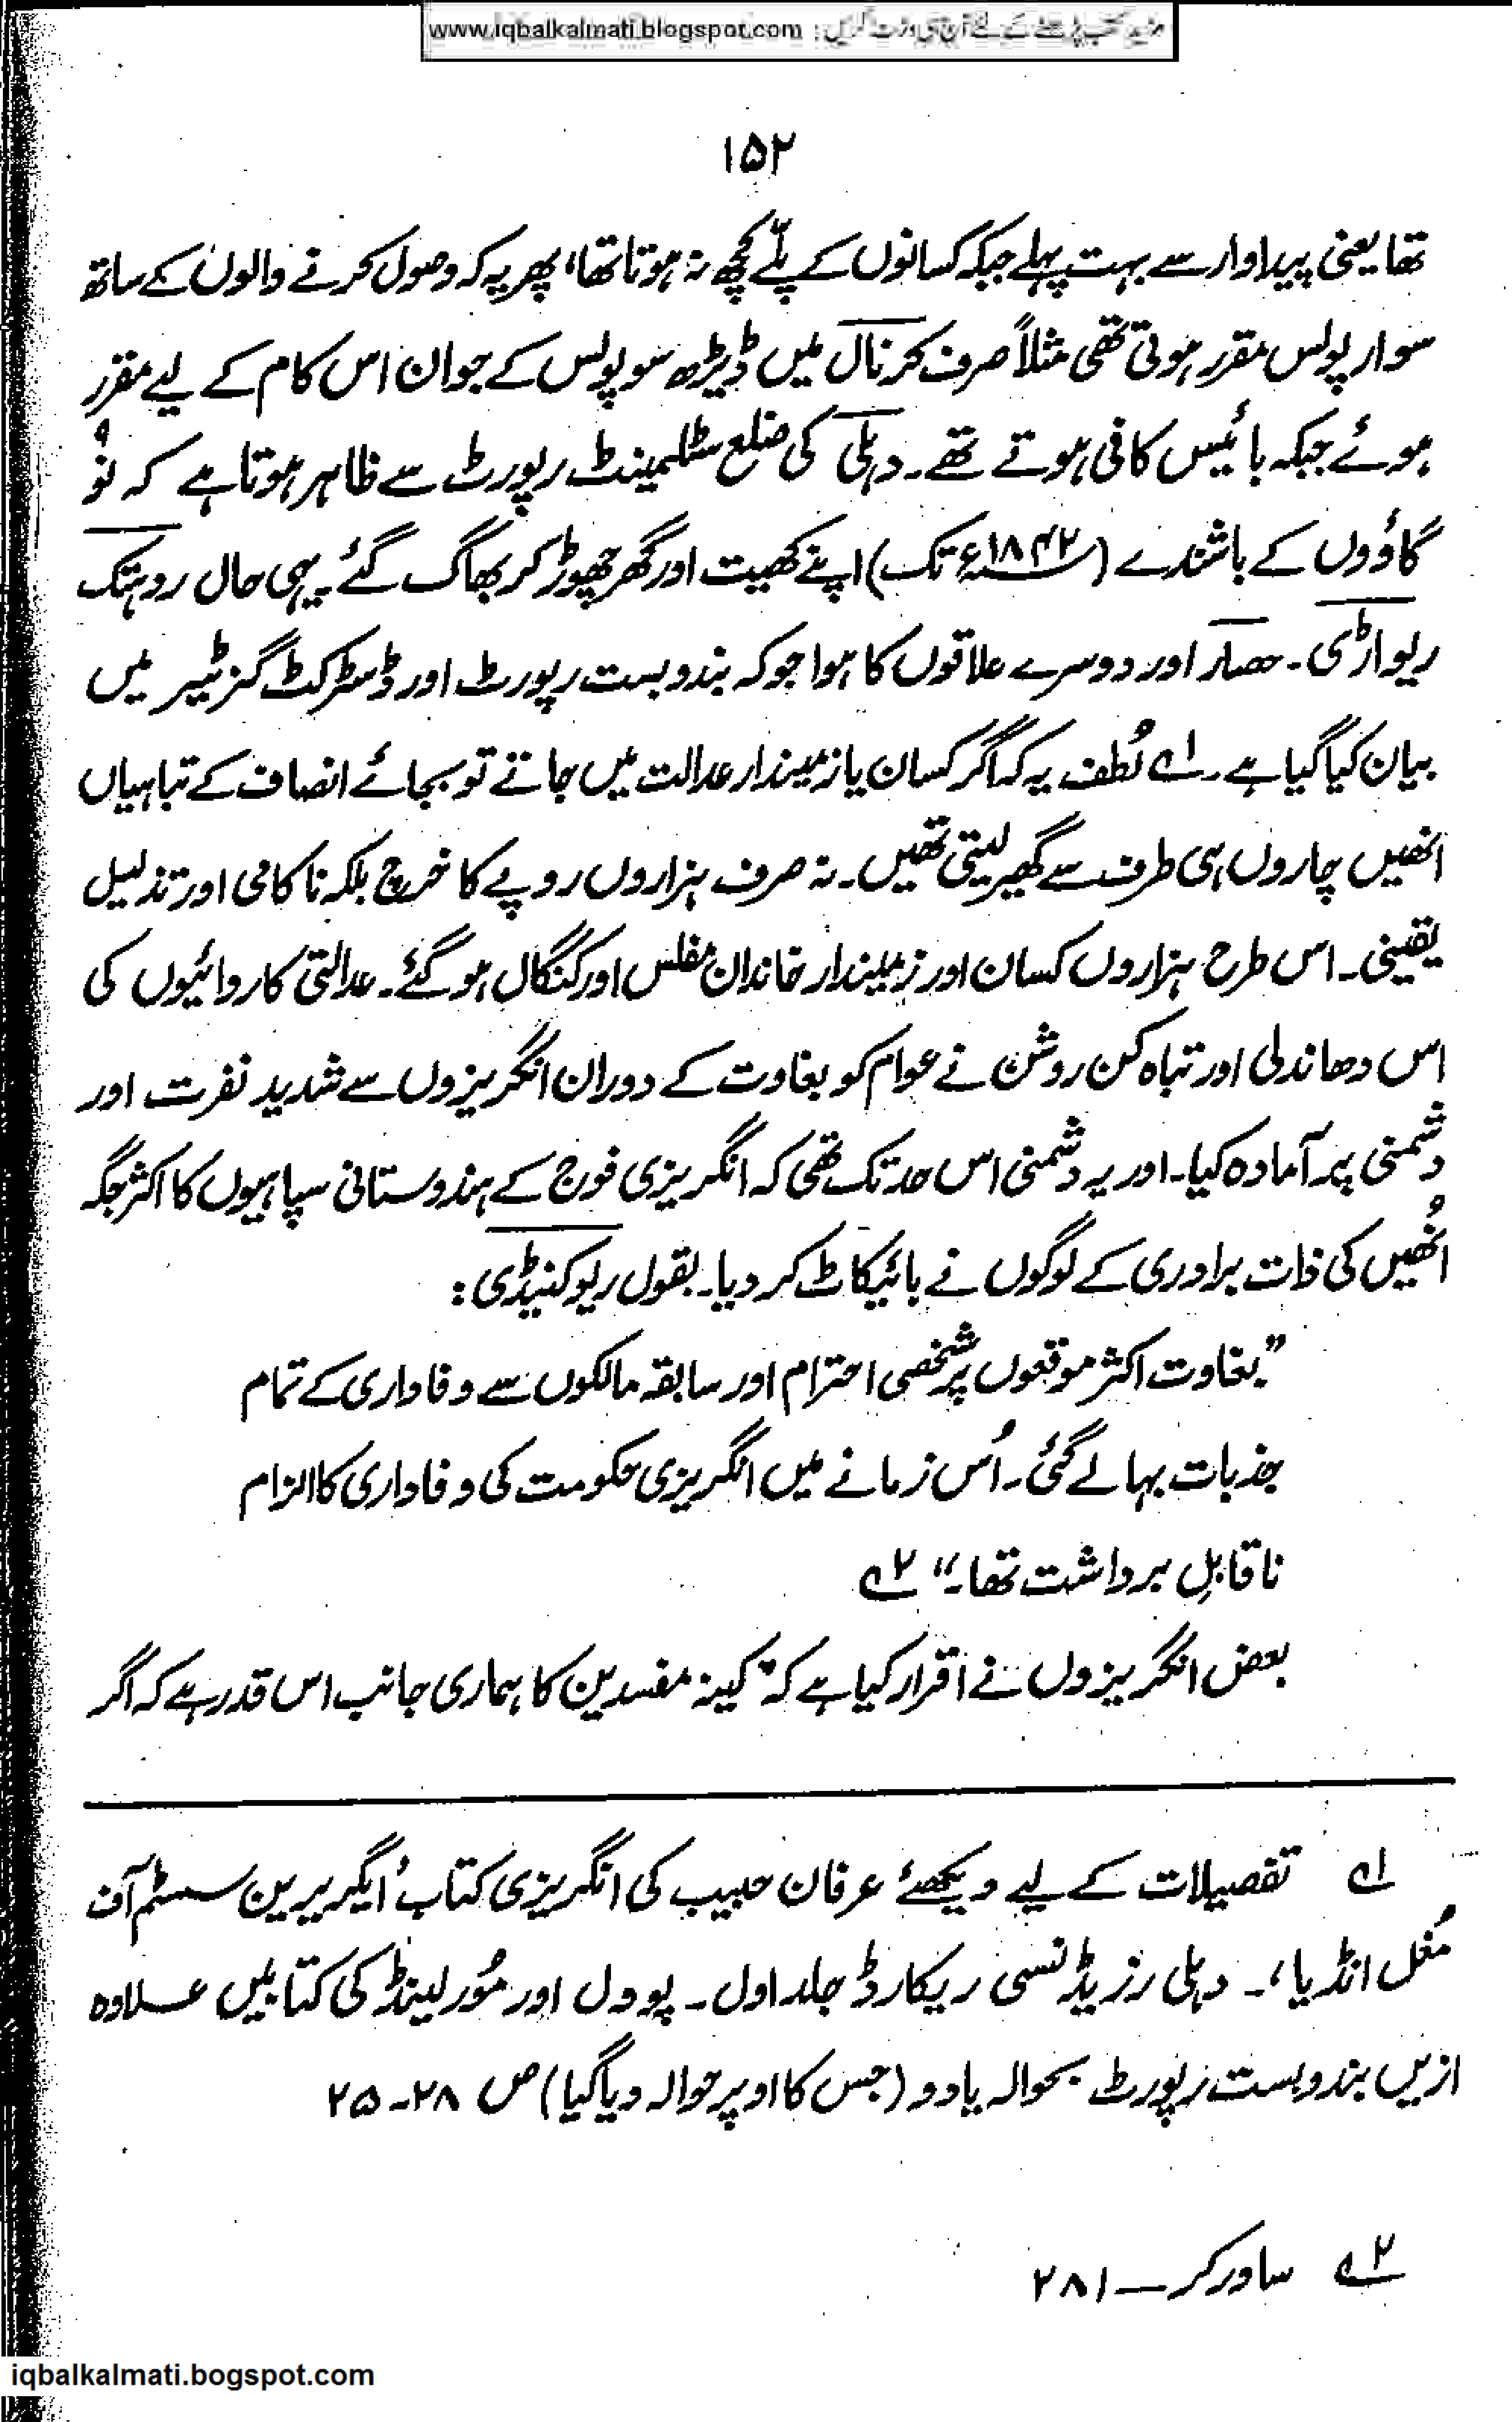 مزید کتب پڑھنے کے لئے آج ہی وزٹ کریں : www.iqbalkalmati.blogspot.com
۱۵۲
تھا یعنی پیداوار سے بہت پہلے جبکہ کسانوں کے پلّے کچھ نہ ہوتا تھا، پھر یہ کہ وصول کرنے والوں کے ساتھ
سوار پولس مقرر ہوتی تھی مثلاً صرف کرنال میں ڈیڑھ سو پولس کے جوان اس کام کے لیے مقرر
ہوئے جبکہ بائیس کافی ہوتے تھے۔ دہلی کی ضلع سٹلمینٹ رپورٹ سے ظاہر ہوتا ہے کہ نُو
گاؤوں کے باشندے (۱۸۴۲ء تک) اپنے کھیت اور گھر چھوڑ کر بھاگ گئے۔ یہی حال روہتک
ریواڑی۔ حصار اور دوسرے علاقوں کا ہوا جو کہ بندوبست رپورٹ اور ڈسٹرکٹ گزٹیر میں
بیان کیا گیا ہے۔ ۱؎ لُطف یہ کہ اگر کسان یا زمیندار عدالت میں جاتے تو بجائے انصاف کے تباہیاں
انھیں چاروں ہی طرف سے گھیر لیتی تھیں۔ نہ صرف ہزاروں روپے کا خرچ بلکہ ناکامی اور تذلیل
یقینی۔ اس طرح ہزاروں کسان اور زمیندار خاندان مفلس اور کنگال ہو گئے۔ عدالتی کاروائیوں کی
اس دھاندلی اور تباہ کن روش نے عوام کو بغاوت کے دوران انگریزوں سے شدید نفرت اور
دشمنی پر آمادہ کیا۔ اور یہ دشمنی اس حد تک تھی کہ انگریزی فوج کے ہندوستانی سپاہیوں کا اکثر جگہ
اُنھیں کی ذات برادری کے لوگوں نے بائیکاٹ کر دیا۔ بقول ریوکنیڈی :
”بغاوت اکثر موقعوں پر شخصی احترام اور سابقہ مالکوں سے وفاداری کے تمام
جذبات بہا لے گئی۔ اُس زمانے میں انگریزی حکومت کی وفاداری کا الزام
ناقابلِ برداشت تھا۔“ ۲؎
بعض انگریزوں نے اقرار کیا ہے کہ ”کینہ مفسدین کا ہماری جانب اس قدر ہے کہ اگر
۱؎ تفصیلات کے لیے دیکھئے عرفان حبیب کی انگریزی کتاب ’ایگریرین سسٹم آف
مُغل انڈیا‘۔ دہلی رزیڈنسی ریکارڈ جلد اول۔ پوول اور مُورلینڈ کی کتابیں علاوہ
ازیں بندوبست رپورٹ بحوالہ یادو (جس کا اوپر حوالہ دیا گیا) ص ۲۸-۲۵
۲؎ ساورکر — ۲۸۱
iqbalkalmati.bogspot.com